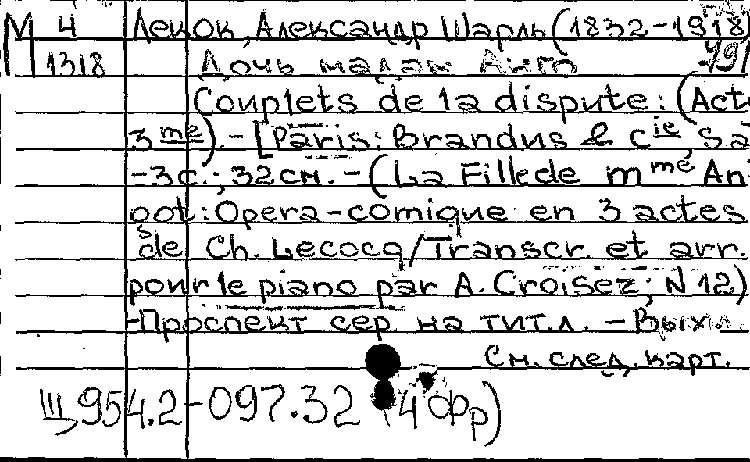 М 4 Лекок, Александр Шарль (1832-1918)
1318 Дочь мадам Анго
Couplets de la dispute: (Act
3 me). - [Paris: Brandus & Cie, Sa
-3с.; 32см. - (La Fille de mme An
got: Opera-comique en 3 actes
de Ch. Lecocq/Transcr. et arr.
pour le piano par A. Croisez; N 12)
-Проспект сер. на тит.л. - Вых.
См. след. карт.
Щ954.2-097.32 (4Фр)